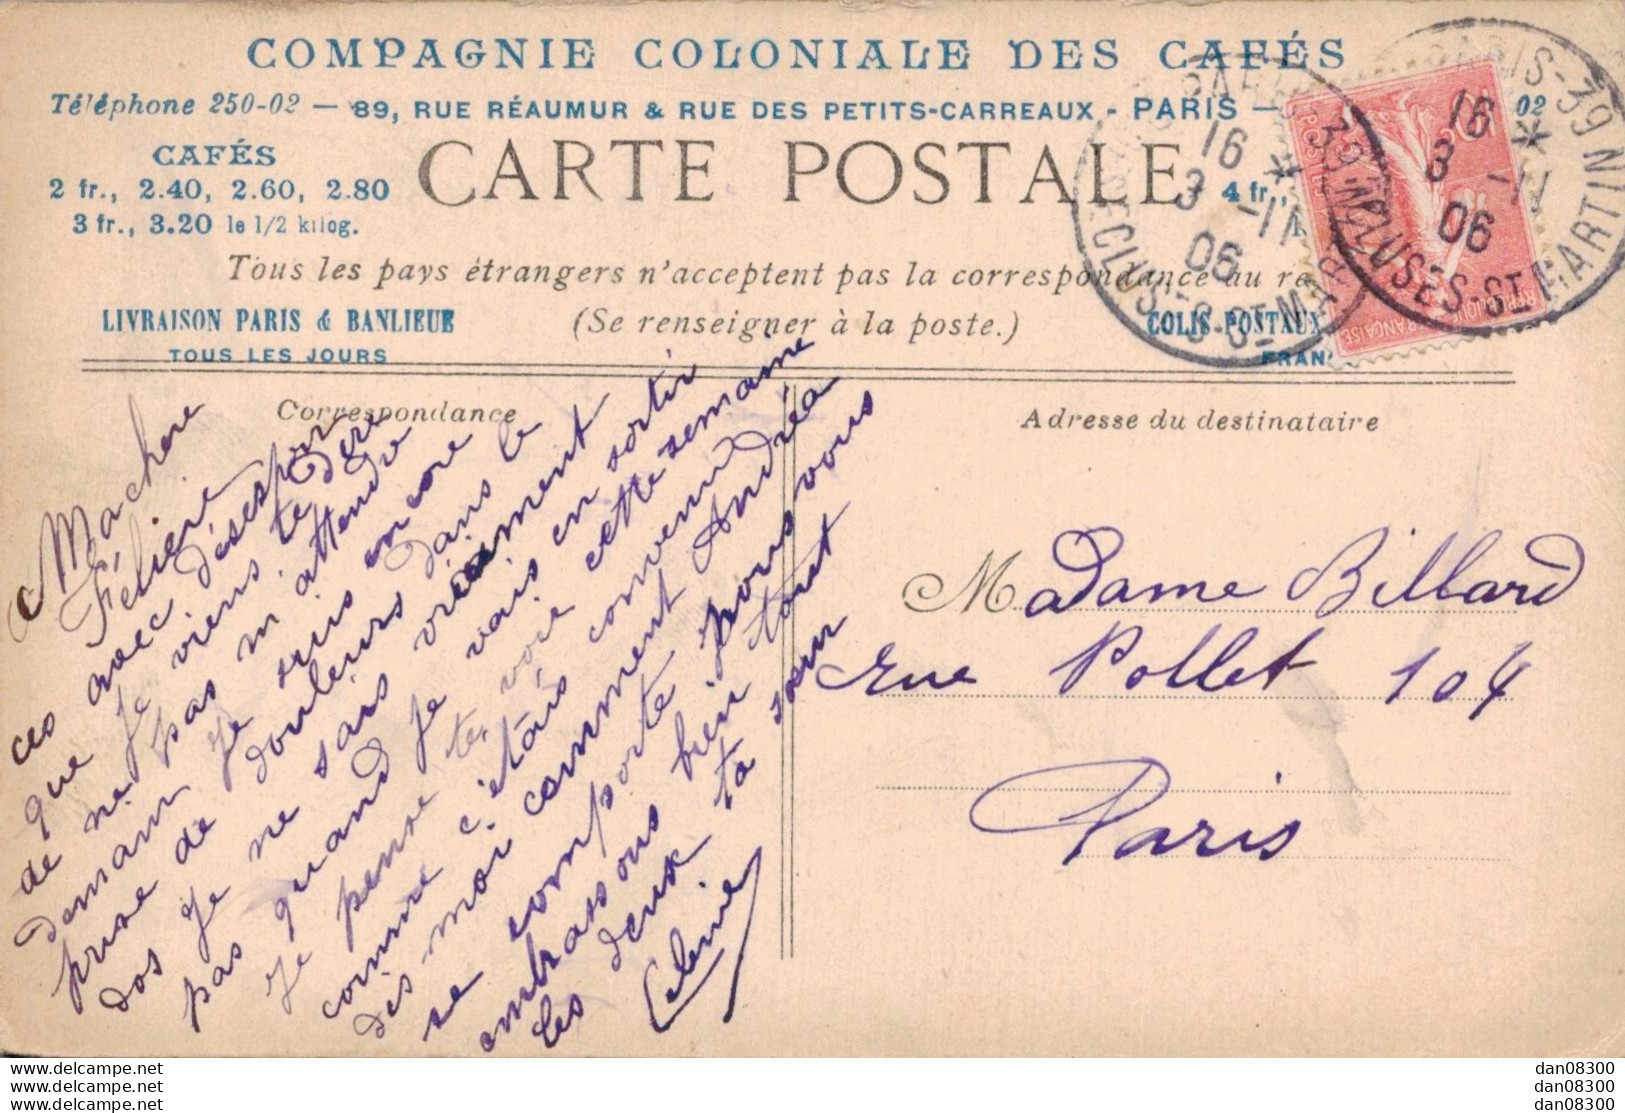 COMPAGNIE COLONIALE DES CAFÉS
Téléphone 250-02 — 89, RUE RÉAUMUR & RUE DES PETITS-CARREAUX - PARIS — 02
CAFÉS
2 fr., 2.40, 2.60, 2.80
3 fr., 3.20 le 1/2 kilog.
CARTE POSTALE
4 fr.,
Tous les pays étrangers n'acceptent pas la correspondance au re
(Se renseigner à la poste.)
LIVRAISON PARIS & BANLIEUE
TOUS LES JOURS
COLIS-POSTAUX
FRAN
PARIS-39
16 *
3 -11
06
ECLUSES-ST MAR
PARIS-39
16 *
3 -11
06
ECLUSES-ST MARTIN
POSTES
REPUBLIQUE FRANÇAISE
Correspondance
Ma chere
Félicie
ces avec désespoir
que je viens te dire
de ne pas m'attendre
demain je suis encore
prise de douleurs dans le
dos je ne sais vraiment
pas quand je vais en sortir
je pense te voir cette semaine
comme c'étais convenu
dis moi comment Andréa
se comporte nous vous
embrassons bien tout
les deux ta sœur
Celinie
Adresse du destinataire
Madame Billard
Rue Pollet 104
Paris
www.delcampe.net
www.delcampe.net
www.delcampe.net
dan08300
dan08300
dan08300